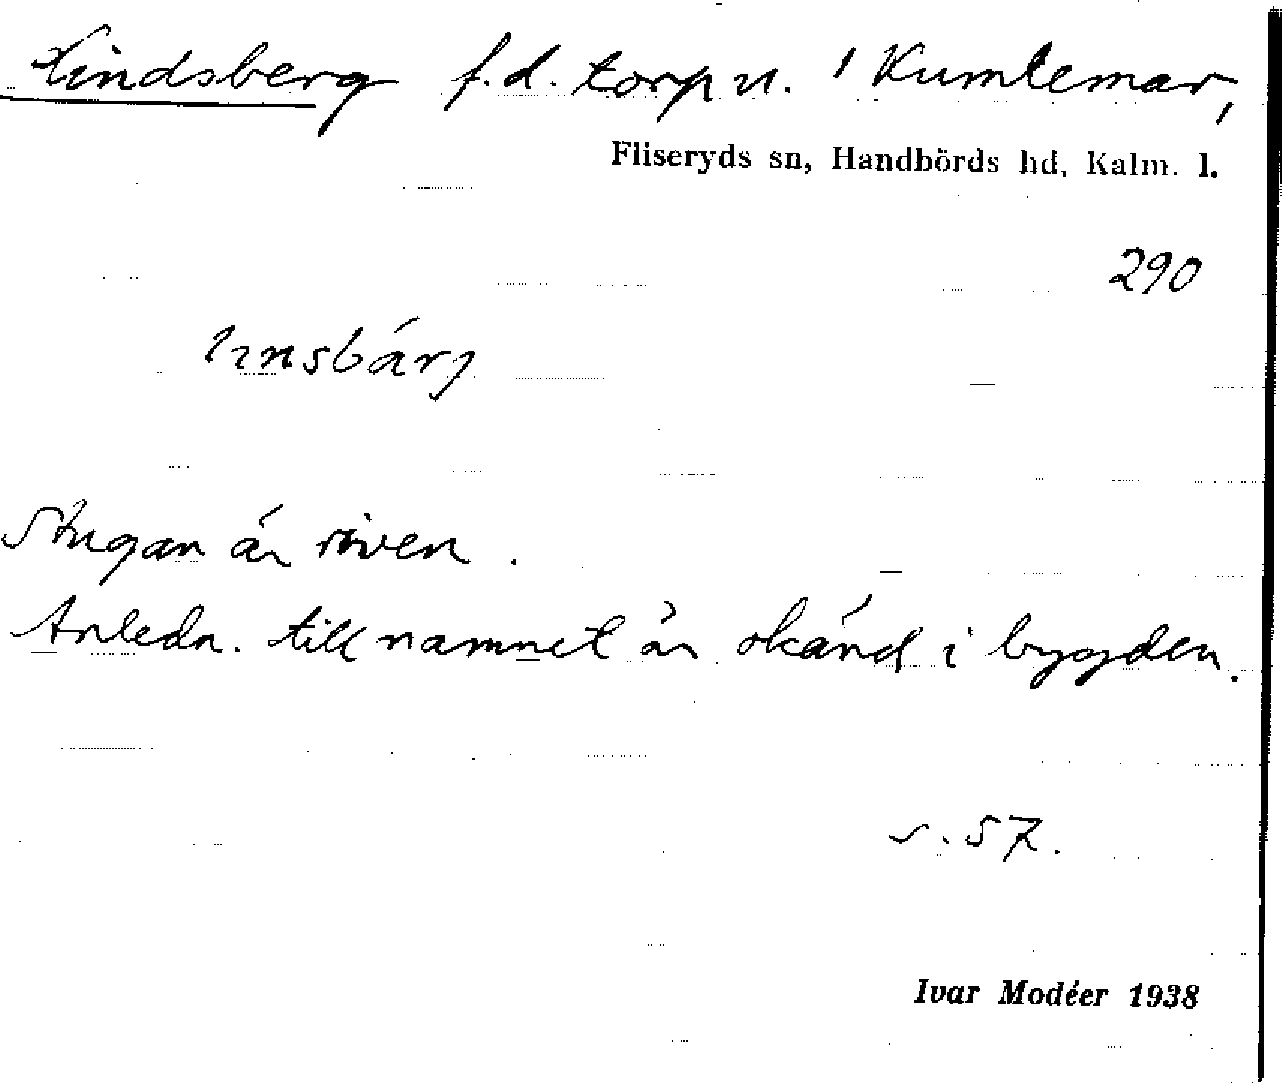 Lindsberg f.d. torp u. 1 Kumlemar,
Fliseryds sn, Handbörds hd, Kalm. l.
290
Stugan är riven.
Anledn. till namnet är okänd i bygden.
s. 57.
Ivar Modéer 1938